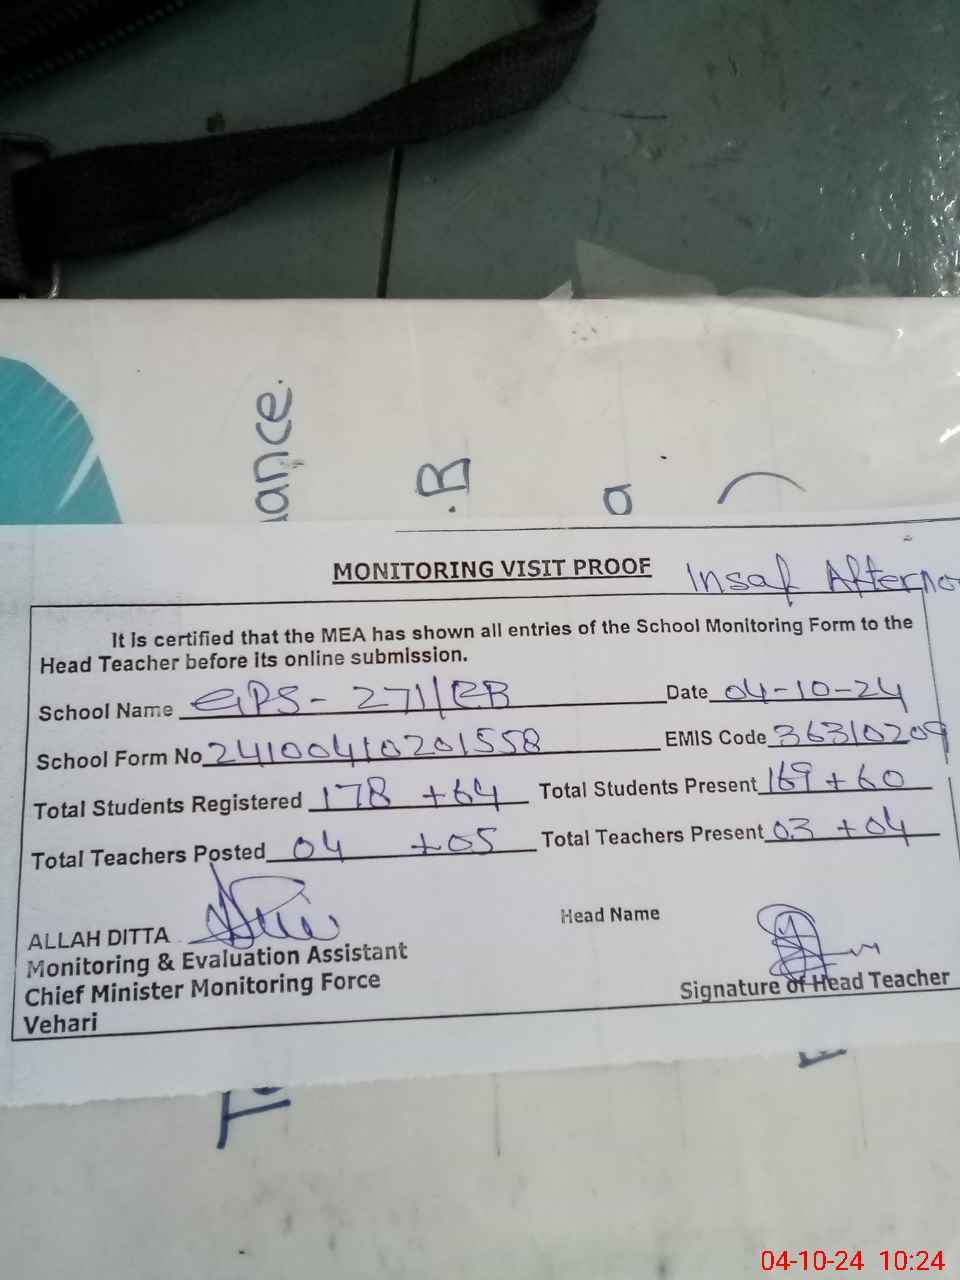 ance.
.B
a
MONITORING VISIT PROOF Insaf Afterno
It is certified that the MEA has shown all entries of the School Monitoring Form to the
Head Teacher before its online submission.
School Name GPS- 271/EB Date 04-10-24
School Form No 24100410201558 EMIS Code 36310209
Total Students Registered 178 +64 Total Students Present 169 +60
Total Teachers Posted 04 +05 Total Teachers Present 03 +04
ALLAH DITTA Head Name
Monitoring & Evaluation Assistant
Chief Minister Monitoring Force
Signature of Head Teacher
Vehari
04-10-24 10:24